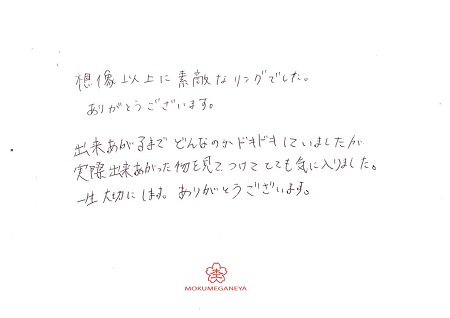 想像以上に素敵なリングでした。
ありがとうございます。
出来あがるまで どんなのかドキドキしていましたが
実際出来あがった物を見て つけて とても気に入りました。
一生大切にします。ありがとうございます。
MOKUMEGANEYA